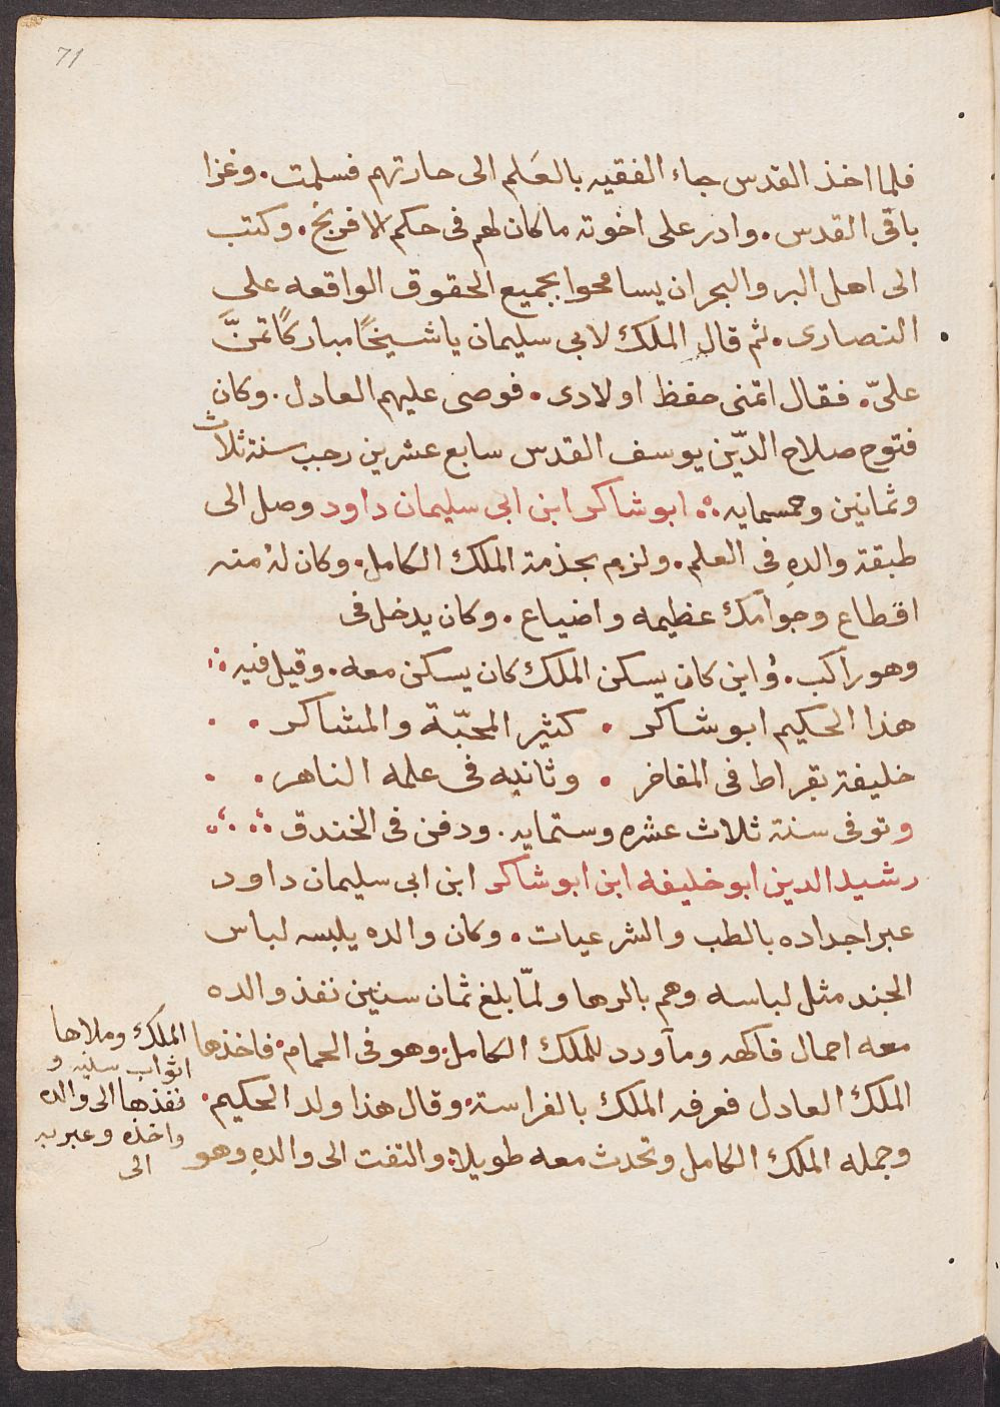 71
فلما اخذ القدس جاء الفقيه بالعَلم الى حارتهم فسلمت. وغزا
باقى القدس. وادر على اخوته ما كان لهم فى حكم الافرنج. وكتب
الى اهل البر والبحر ان يسامحوا بجميع الحقوق الواقعه على
النصارى. ثم قال الملك لابى سليمان يا شيخًا مباركًا تمنَّ
علىّ. فقال اتمنى حفظ اولادى. فوصى عليهم العادل. وكان
فتوح صلاح الدّين يوسف القدس سابع عشرين رجب سنة ثلاث
وثمانين وخمسمايه ابو شاكر ابن ابى سليمان داود وصل الى
طبقة والدهِ فى العلم. ولزم بخذمة الملك الكامل. وكان لهُ منه
اقطاع وجوامك عظيمه واضياع. وكان يدخل فى
وهو راكب. وُاين كان يسكن الملك كان يسكن معه. وقيل فيه
هذا الحكيم ابو شاكر . كثير المحبّة والمشاكر .
خليفة بقراط فى المفاخر . وثانيه فى علمه الناهر .
وتوفى سنة ثلاث عشره وستمايه. ودفن فى الخندق
رشيد الدين ابو خليفه ابن ابو شاكر ابن ابى سليمان داود
عبر اجداده بالطب والشرعيات. وكان والده يلبسه لباس
الجند مثل لباسه وهم بالرها ولمّا بلغ ثمان سنين نفذ والده
معه احمال فاكهه ومآورد للملك الكامل. وهو فى الحمام فاخذها
الملك وملاها
اثواب سنيه و
نفذها الى والده
واخذه وعبر به
الى
الملك العادل فعرفه الملك بالفراسة. وقال هذا ولد الحكيم.
وحمله الملك الكامل وتحدث معه طويلا. والتفت الى والدهِ وهو